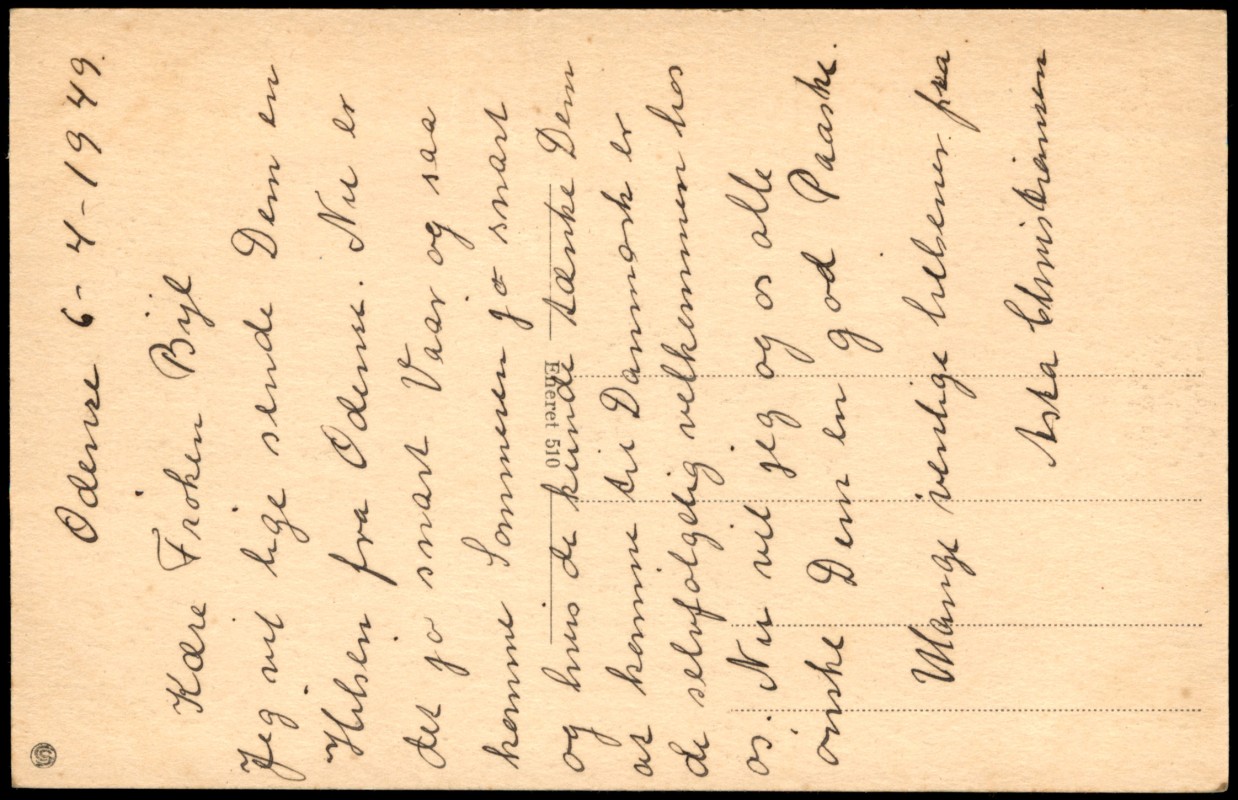 Odense 6-4-1949.
Kære Frøken Bijl
Jeg vil lige sende Dem en
Hilsen fra Odense. Nu er
det jo snart Vaar og saa
komme Sommeren jo snart
og hvis de kunde tænke Dem
at komme til Danmark er
de selvfølgelig velkommen hos
os. Nu vil jeg og os alle
ønske Dem en god Paaske.
Mange venlige hilsener fra
Asta Christiansen
Eneret 510